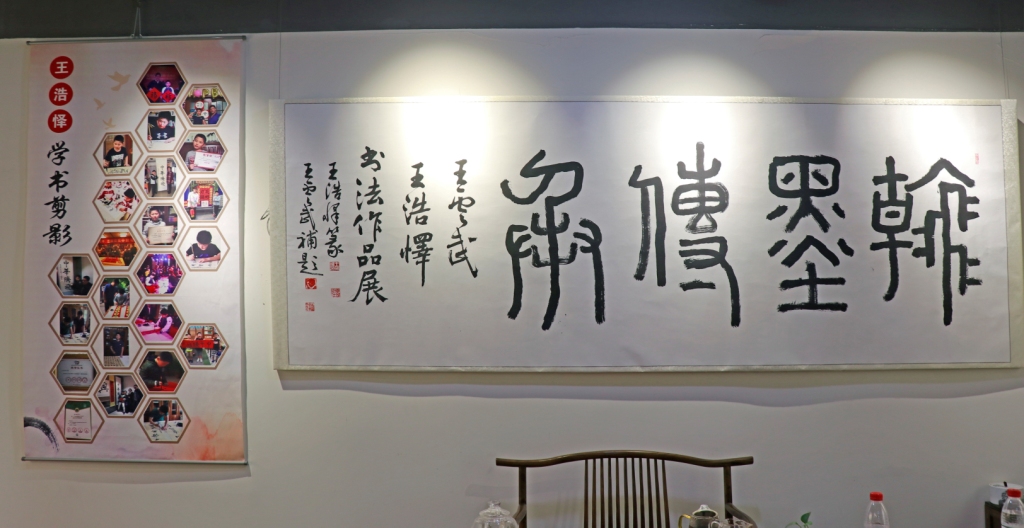 王浩怿
学书剪影
翰墨傳承
王雲武
王浩懌
书法作品展
王浩懌篆
王雲武補題